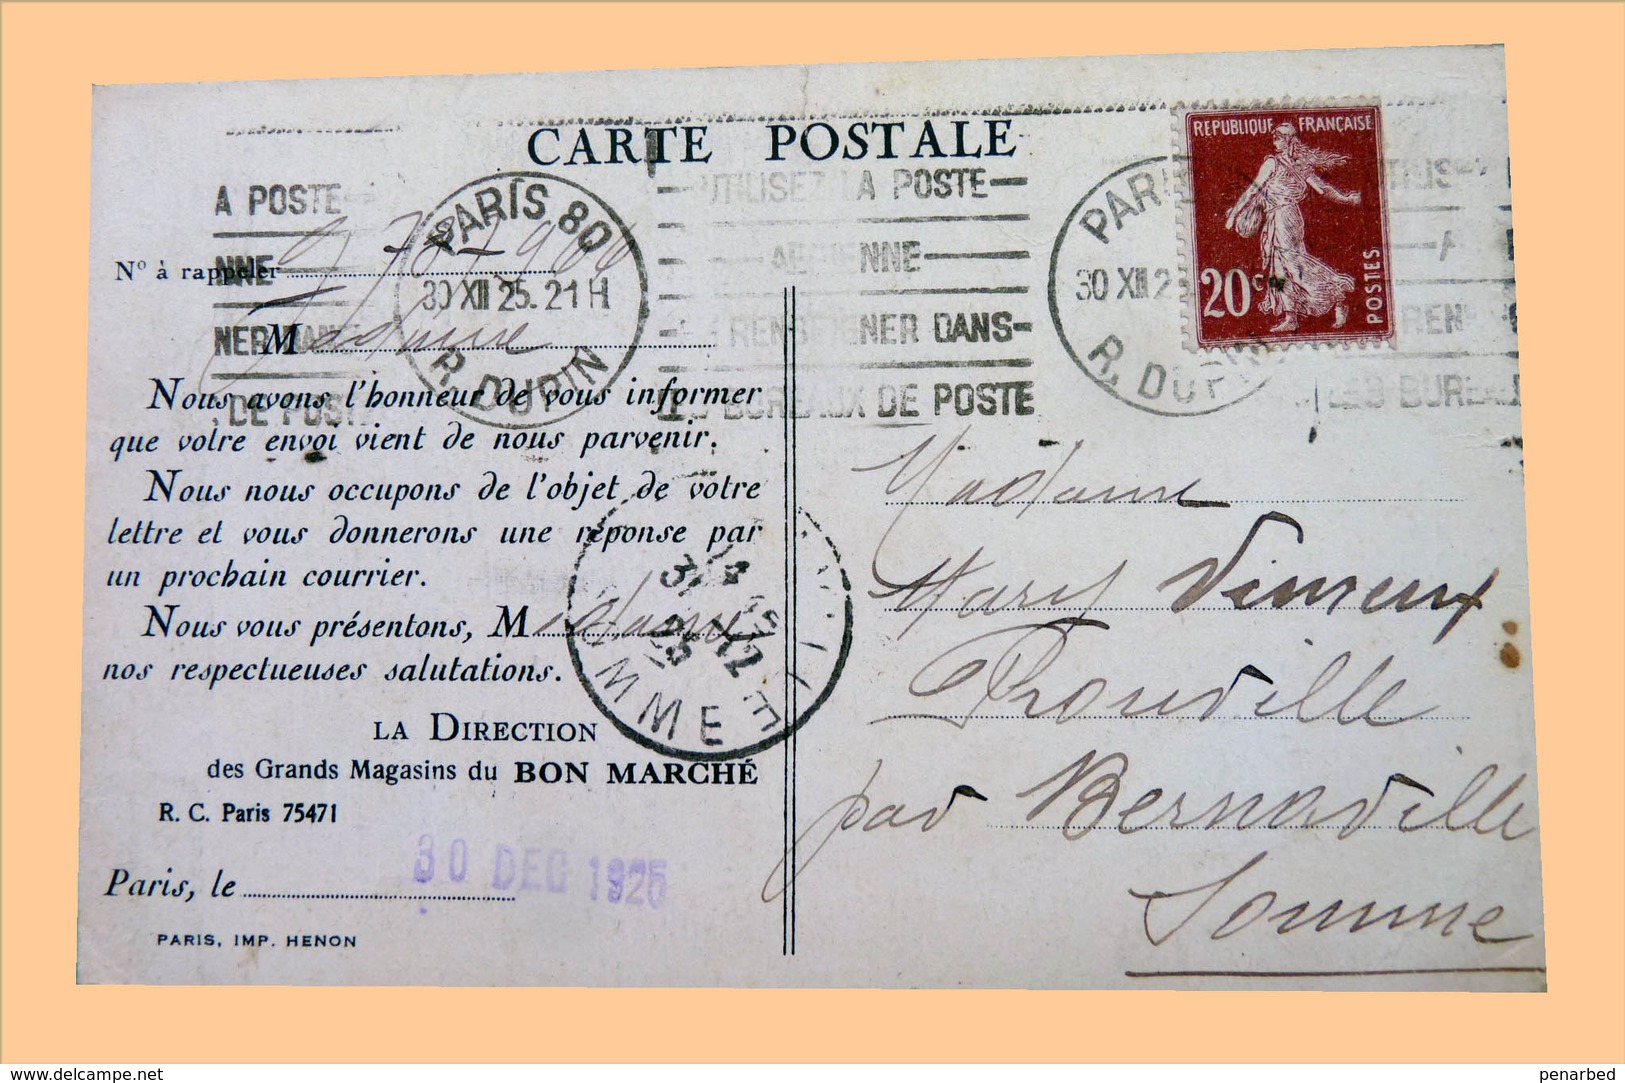 CARTE POSTALE
A POSTE
UTILISEZ LA POSTE
NNE
NNE
DE POSTE
RENS NER DANS
BUREAUX DE POSTE
PARIS 80
30 XII 25. 21 H
R. DUPIN
PARI
30 XII 2
R. DUPIN
REPUBLIQUE FRANÇAISE
20
POSTES
Nº à rappeler
Madame
Nous avons l'honneur de vous informer
que votre envoi vient de nous parvenir.
Nous nous occupons de l'objet de votre
lettre et vous donnerons une réponse par
un prochain courrier.
Nous vous présentons, Madame
nos respectueuses salutations.
LA DIRECTION
des Grands Magasins du BON MARCHÉ
R. C. Paris 75471
Paris, le 30 DEC 1925
PARIS, IMP. HENON
SOMME
Madame
Mary Vimeux
Prouville
par Bernaville
Somme
www.delcampe.net
penarbed